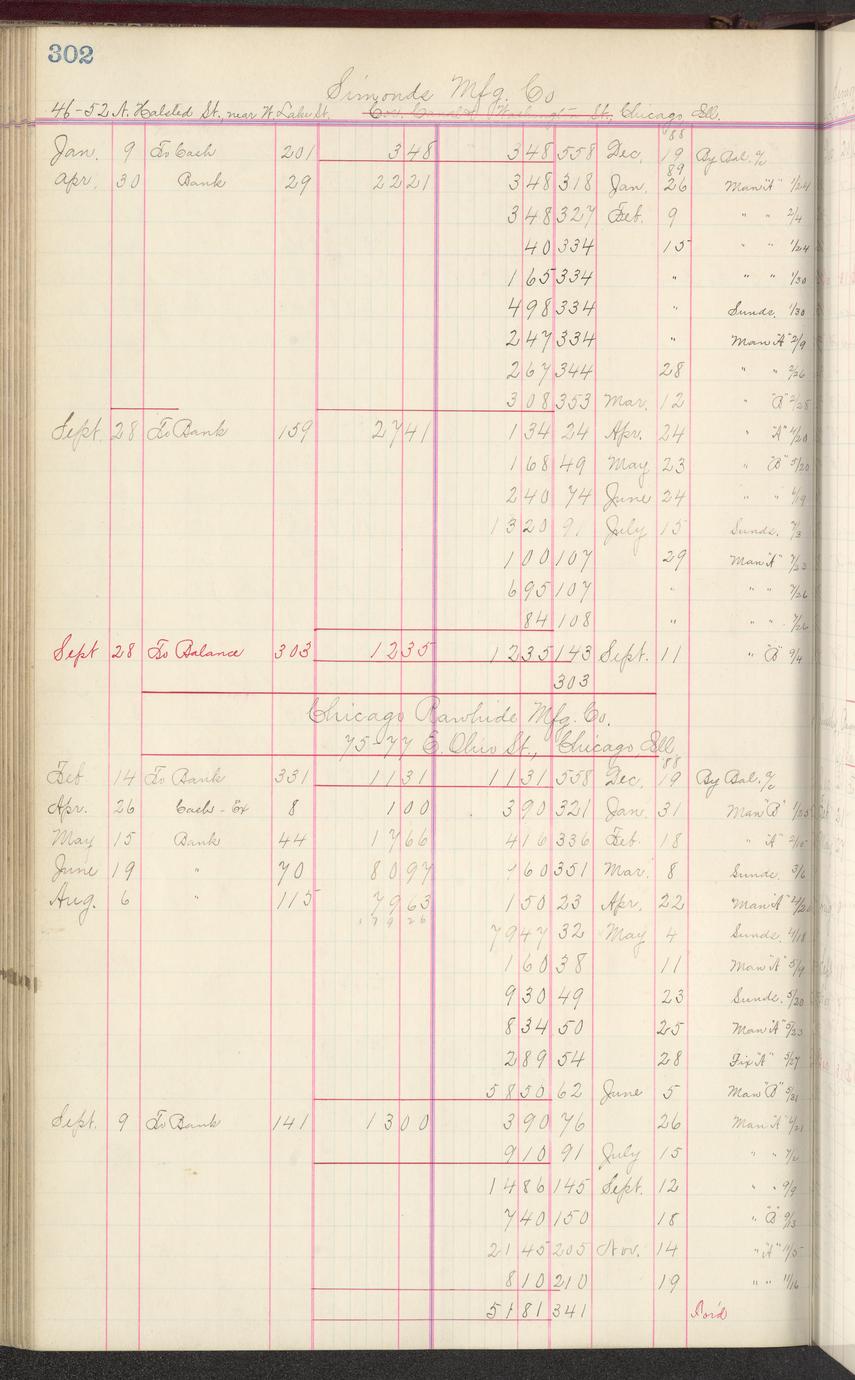 302
Simonds Mfg. Co
46-52 N. Halsted St., near W. Lake St. Cor. Canal & Washington St., Chicago Ill.
88
Jan. 9 To Cash 201 3 48 3 48 558 Dec. 19 By Bal. %
89
Apr. 30 Bank 29 22 21 3 48 318 Jan. 26 Man "A" 1/24
3 48 327 Feb. 9 " " 2/4
40 334 15 " " 1/24
1 65 334 " " " 1/30
4 98 334 " Sunds. 1/30
2 47 334 " Man "A" 2/9
2 67 344 28 " " 2/26
3 08 353 Mar. 12 " "B" 2/28
Sept. 28 To Bank 159 27 41 1 34 24 Apr. 24 " "A" 4/20
1 68 49 May 23 " "B" 5/20
2 40 74 June 24 " " 6/19
13 20 91 July 15 Sunds. 7/3
1 00 107 29 Man "A" 7/23
6 95 107 " " " 7/26
84 108 " " " 7/26
Sept 28 To Balance 303 12 35 12 35 143 Sept. 11 " "B" 9/4
303
Chicago Rawhide Mfg. Co.
75-77 E. Ohio St., Chicago, Ill
88
Feb. 14 To Bank 331 11 31 11 31 558 Dec. 19 By Bal. %
Apr. 26 Cash - Ex 8 1 00 3 90 321 Jan. 31 Man "B" 1/25
May 15 Bank 44 17 66 4 16 336 Feb. 18 " "A" 2/15
June 19 " 70 80 97 7 60 351 Mar. 8 Sunds. 3/6
Aug. 6 " 115 79 63 1 50 23 Apr. 22 Man "A" 4/20
79 47 32 May 4 Sunds. 4/18
1 60 38 11 Man "A" 5/9
9 30 49 23 Sunds. 5/20
8 34 50 25 Man "A" 5/23
2 89 54 28 Fix "A" 5/27
58 50 62 June 5 Man "B" 5/31
Sept. 9 To Bank 141 13 00 3 90 76 26 Man "A" 6/21
9 10 91 July 15 " " 7/2
14 86 145 Sept. 12 " " 9/9
7 40 150 18 " "B" 9/13
21 45 205 Nov. 14 " "A" 11/5
8 10 210 19 " " 11/16
51 81 341 For'd